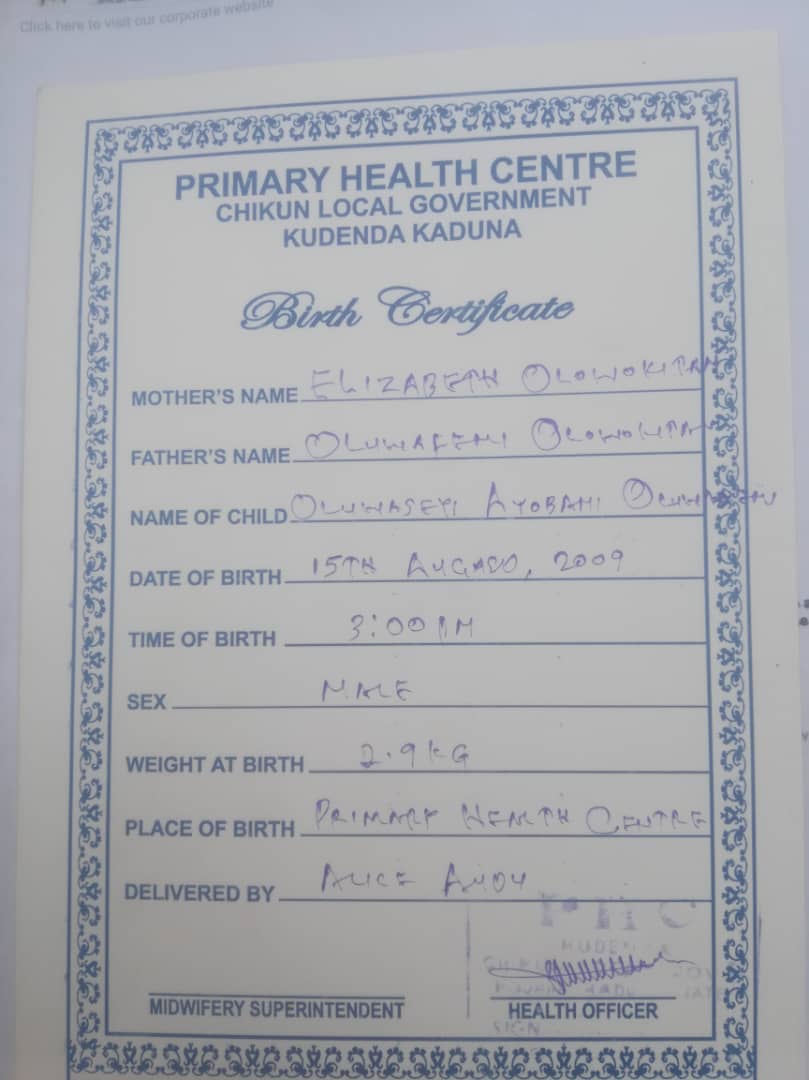 Click here to visit our corporate website
PRIMARY HEALTH CENTRE
CHIKUN LOCAL GOVERNMENT
KUDENDA KADUNA
Birth Certificate
MOTHER'S NAME ELIZABETH OLOWOKITAN
FATHER'S NAME OLUWAFEMI OLOWOKITAN
NAME OF CHILD OLUWASEYI AYOBAMI
DATE OF BIRTH 15TH 2009
TIME OF BIRTH 3:00 PM
SEX MALE
WEIGHT AT BIRTH 2.9KG
PLACE OF BIRTH PRIMARY HEALTH CENTRE
DELIVERED BY ALICE
PHC
MIDWIFERY SUPERINTENDENT HEALTH OFFICER
SIGN